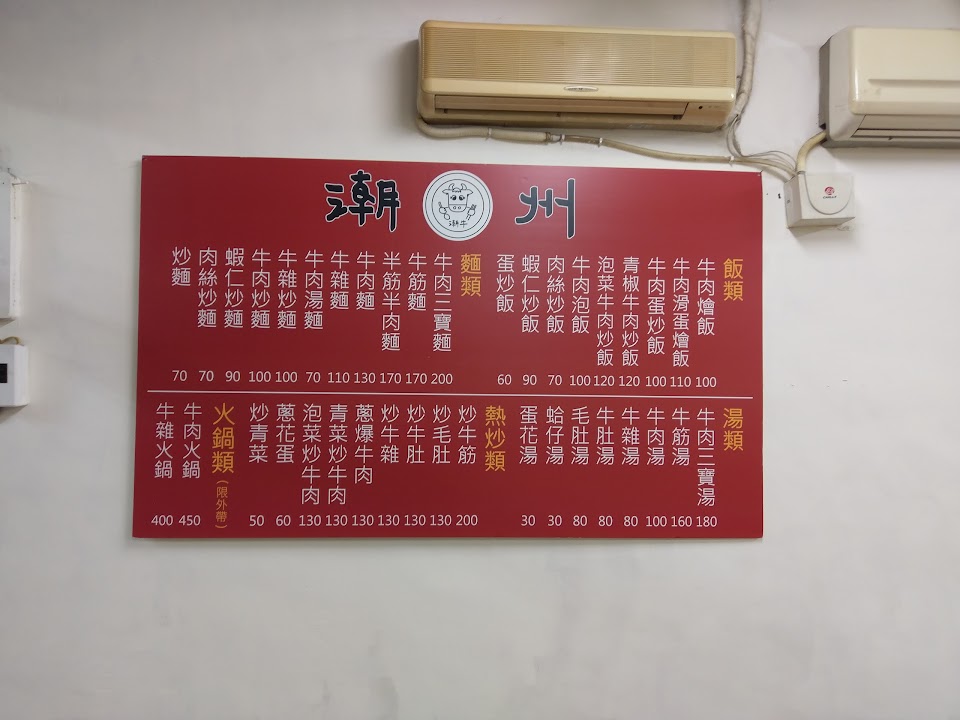 潮 州
潮牛
飯類
牛肉燴飯 100
牛肉滑蛋燴飯 110
牛肉蛋炒飯 100
青椒牛肉炒飯 120
泡菜牛肉炒飯 120
牛肉泡飯 100
肉絲炒飯 70
蝦仁炒飯 90
蛋炒飯 60
麵類
牛肉三寶麵 200
牛筋麵 170
半筋半肉麵 170
牛肉麵 130
牛雜麵 110
牛肉湯麵 70
牛雜炒麵 100
牛肉炒麵 100
蝦仁炒麵 90
肉絲炒麵 70
炒麵 70
湯類
牛肉三寶湯 180
牛筋湯 160
牛肉湯 100
牛雜湯 80
牛肚湯 80
毛肚湯 80
蛤仔湯 30
蛋花湯 30
熱炒類
炒牛筋 200
炒毛肚 130
炒牛肚 130
炒牛雜 130
蔥爆牛肉 130
青菜炒牛肉 130
泡菜炒牛肉 130
蔥花蛋 60
炒青菜 50
火鍋類(限外帶)
牛肉火鍋 450
牛雜火鍋 400